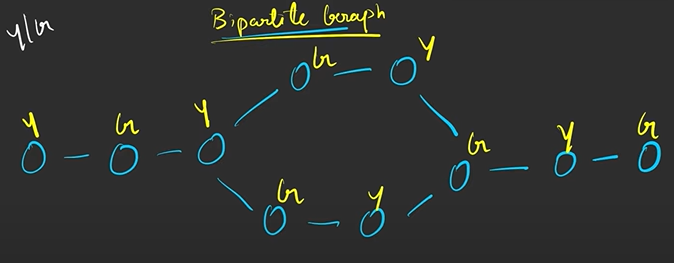 Bipartite Graph
y/G
G y
y G y G y G
G y